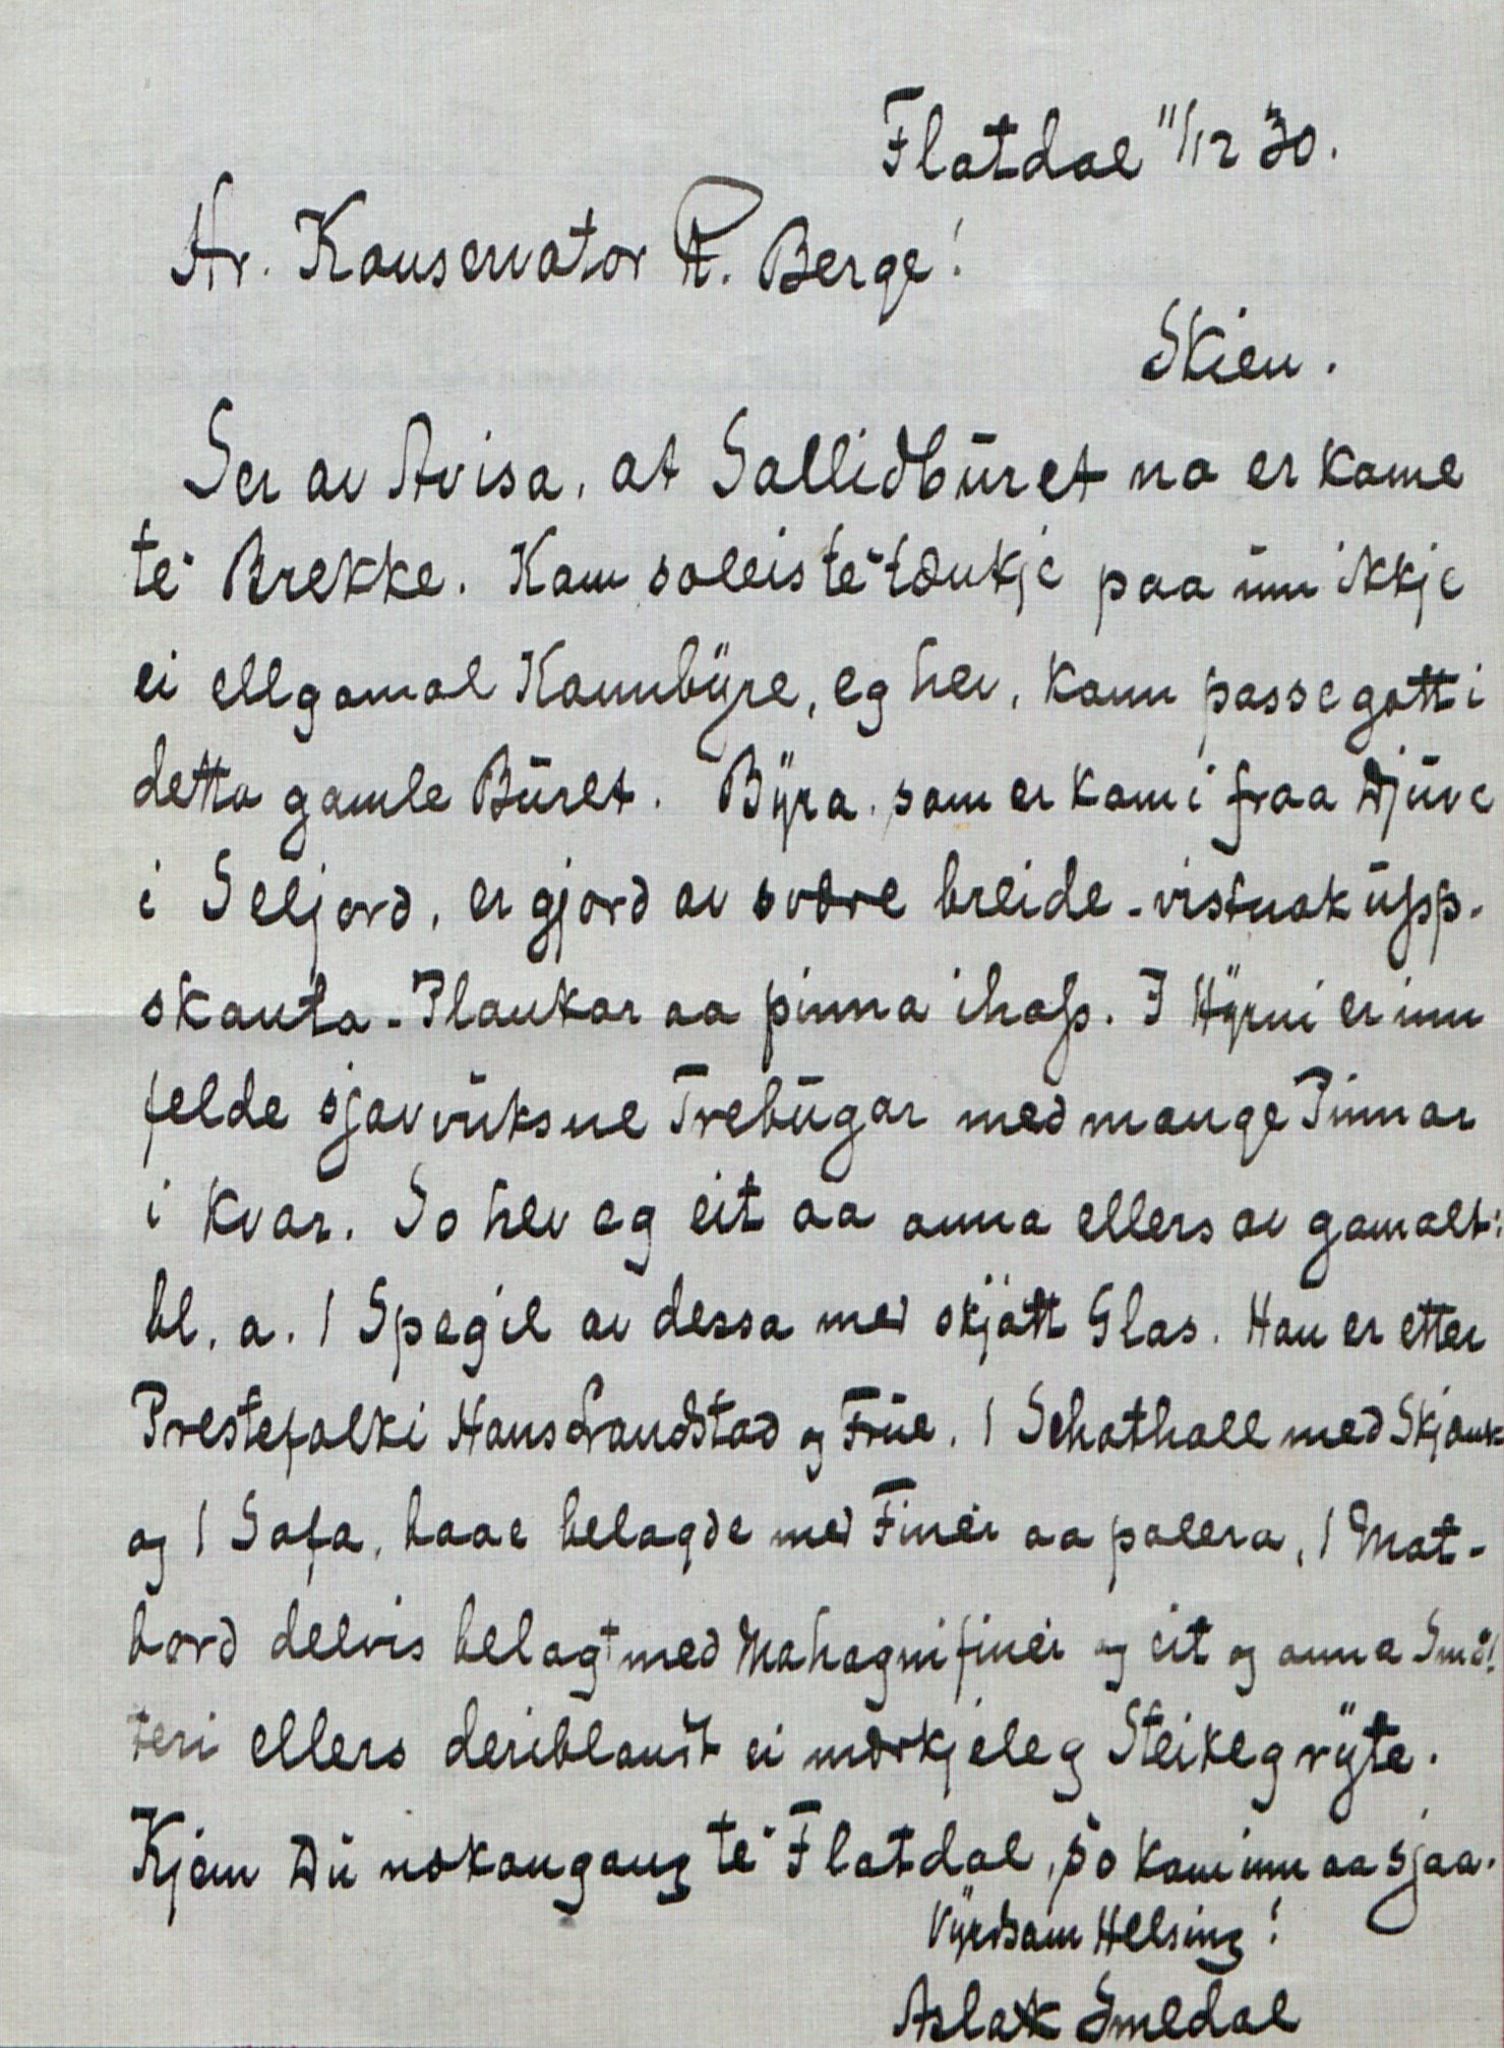 Flatdal 11/12 30.
Hr. Konservator R. Berge!
Skien.
Ser av Avisa, at Sallidbūret no er kome
te Brekke. Kom soleis te tænkje paa um ikkje
ei ellgomol Konnbyre, eg hev, kann passe gott i
detta gamle Būret. Byra som er komi fraa Djūve
i Seljord, er gjord av svære breide - vistnok ūpp-
skanta - Plankar aa pinna ihop. I Hyrni er inn
felde sjøvvūksne Trebūgar med mange Pinnar
i kvar. So hev eg eit aa anna ellers av gamalt:
bl. a. 1 Spegil av dessa med skjøtt Glas. Han er etter
Prestefolki Hans Landstad og Frūe. 1 Schathall med Skjænk
og 1 Sofa, baae belagde med Finér aa polera, 1 Mat-
bord delvis belagt med Mahagnifinér og eit og anna Små!
teri ellers deriblandt ei mærkjeleg Steikegryte.
Kjem Dū nokongong te Flatdal, so kom inn aa sjaa.
Vyrdsam Helsing!
Aslak Smedal